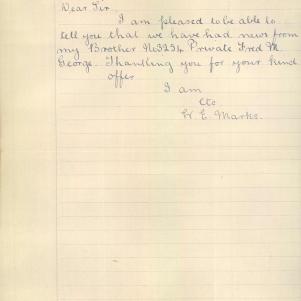 Dear Sir
I am pleased to be able to
tell you that we have had news from
my Brother No 3234 Private Fred M.
George. Thanking you for your kind
offer
I am
etc
W E. Marks.